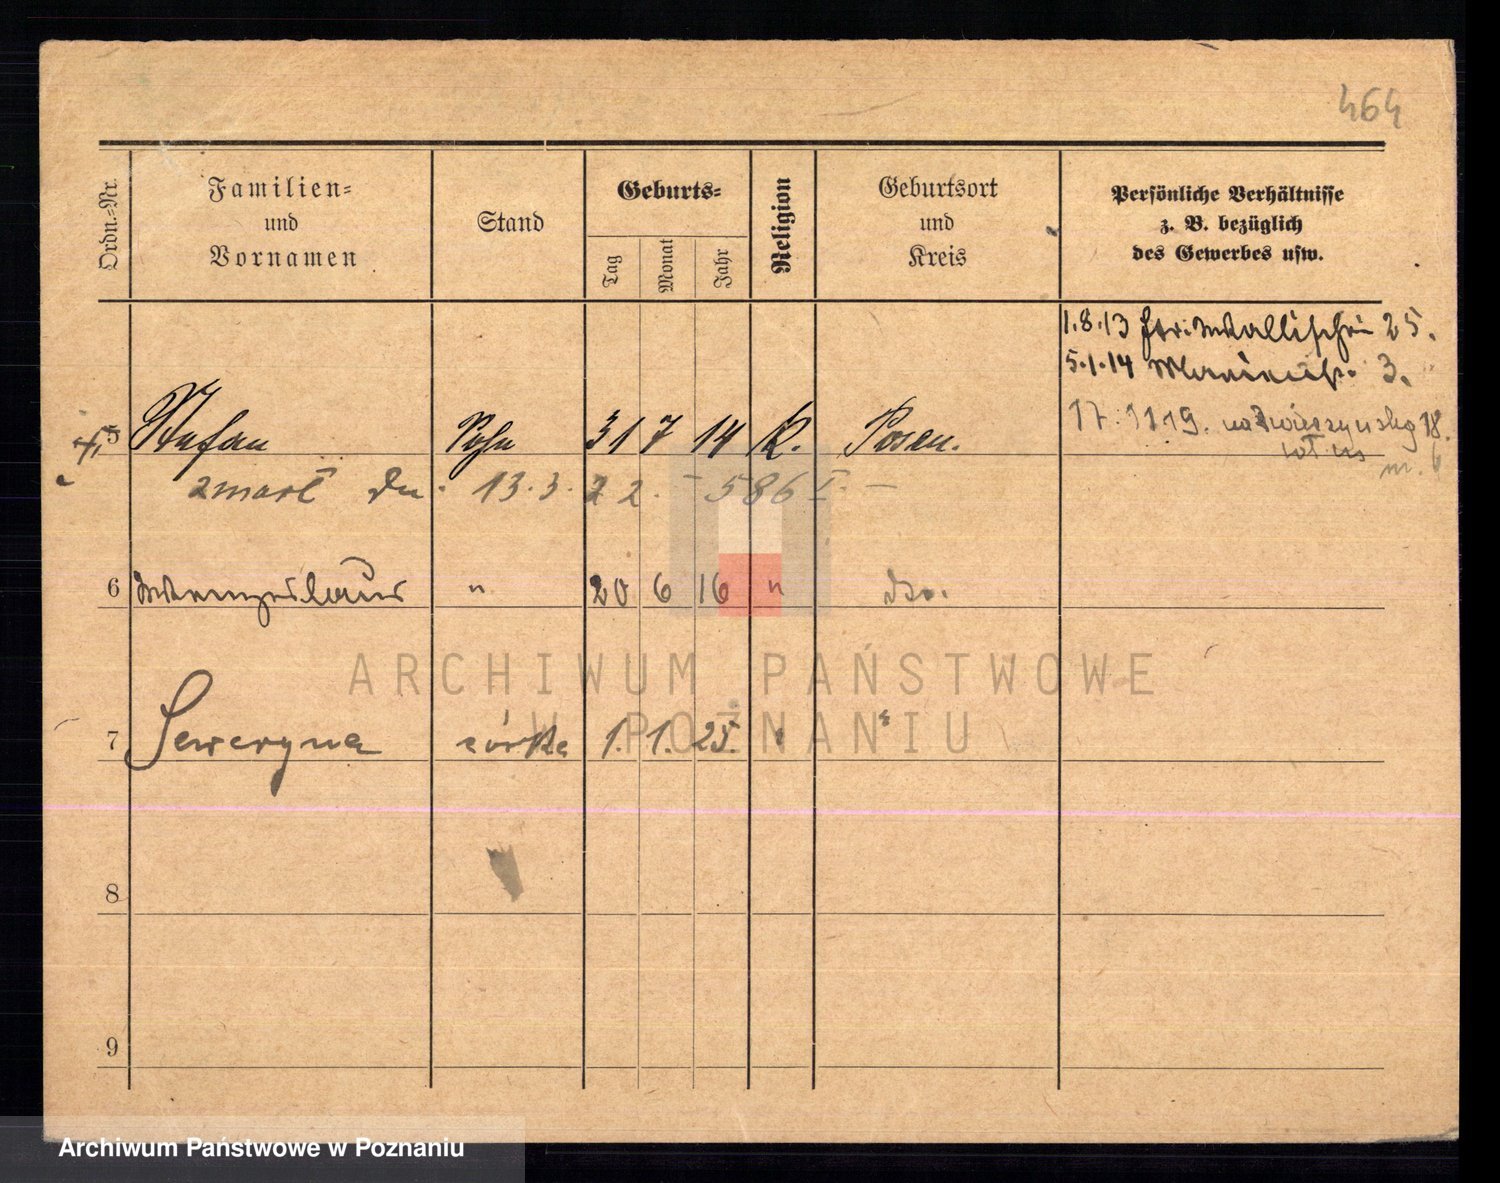 464
Ordn.-Nr.
Familien-
und
Vornamen
Stand
Geburts-
Tag
Monat
Jahr
Religion
Geburtsort
und
Kreis
Persönliche Verhältnisse
z. B. bezüglich
des Gewerbes usw.
1.8.13 25.
5.1.14 3.
17.1119. 18.
5 Stefan Sohn 31 7 14 K. Posen.
m. 6
zmarł dn. 13.3.22. – 586 I. –
6 Wenzeslaus " 20 6 16 " do.
ARCHIWUM PAŃSTWOWE
W POZNANIU
7 Seweryna córka 1. 1. 25. " "
8
9
Archiwum Państwowe w Poznaniu